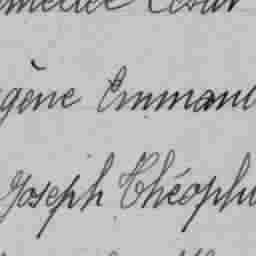 César
gène Emmanu
Joseph Théophi